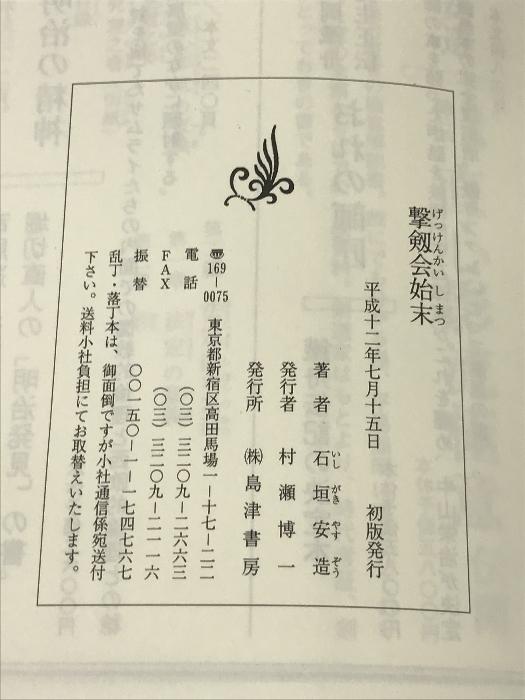 撃剱会始末
げっけんかいしまつ
平成十二年七月十五日　初版発行
著者　石垣安造
いしがきやすぞう
発行者　村瀬博一
発行所　㈱島津書房
〠169-0075　東京都新宿区高田馬場一ー十七ー二二
電話　(〇三)三二〇九ー二六六三
FAX　(〇三)三二〇九ー二一一六
振替　〇〇一五〇ー一ー一七四七六七
乱丁・落丁本は、御面倒ですが小社通信係宛送付
下さい。送料小社負担にてお取替えいたします。